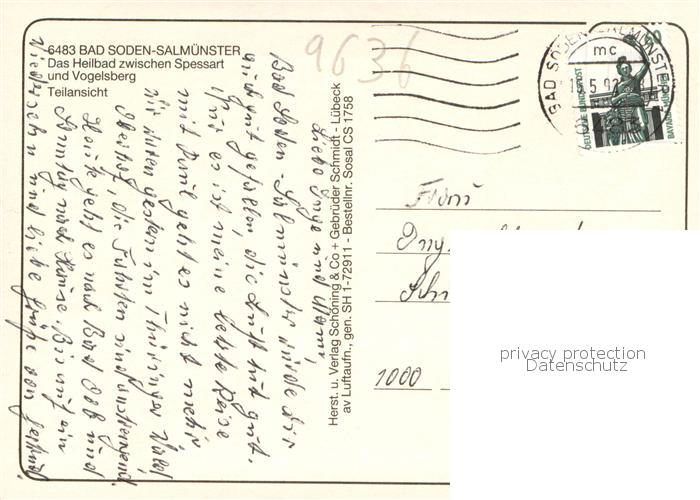 6483 BAD SODEN-SALMÜNSTER
Das Heilbad zwischen Spessart
und Vogelsberg
Teilansicht
9636
Herst. u. Verlag Schöning & Co + Gebrüder Schmidt - Lübeck
av Luftaufn., gen. SH 1-72911 - Bestellnr. Sosal CS 1758
BAD SODEN-SALMÜNSTER
mc
60
DEUTSCHE BUNDESPOST
Liebe Inge und
Bad Soden-Salmünster würde dir
auch gut gefallen, die Luft tut gut.
es ist meine letzte Reise
mit geht es nicht mehr,
wir waren gestern im Thüringer Wald
Herbst, die Fahrten sind anstrengend.
Heute geht es nach Bad Orb und
Sonntag nach Hause. Bis auf ein
Wiedersehn und liebe Grüße von
Frau
1000
privacy protection
Datenschutz